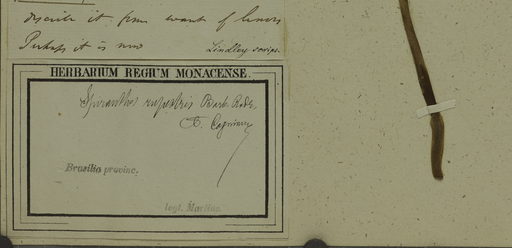 describe it from want of
Perhaps it is new
Lindley scrips.
HERBARIUM REGIUM MONACENSE.
Spiranthes rupestris Barb. Rodr.
A. Cogniaux
Brasilia provinc.
legt. Martius